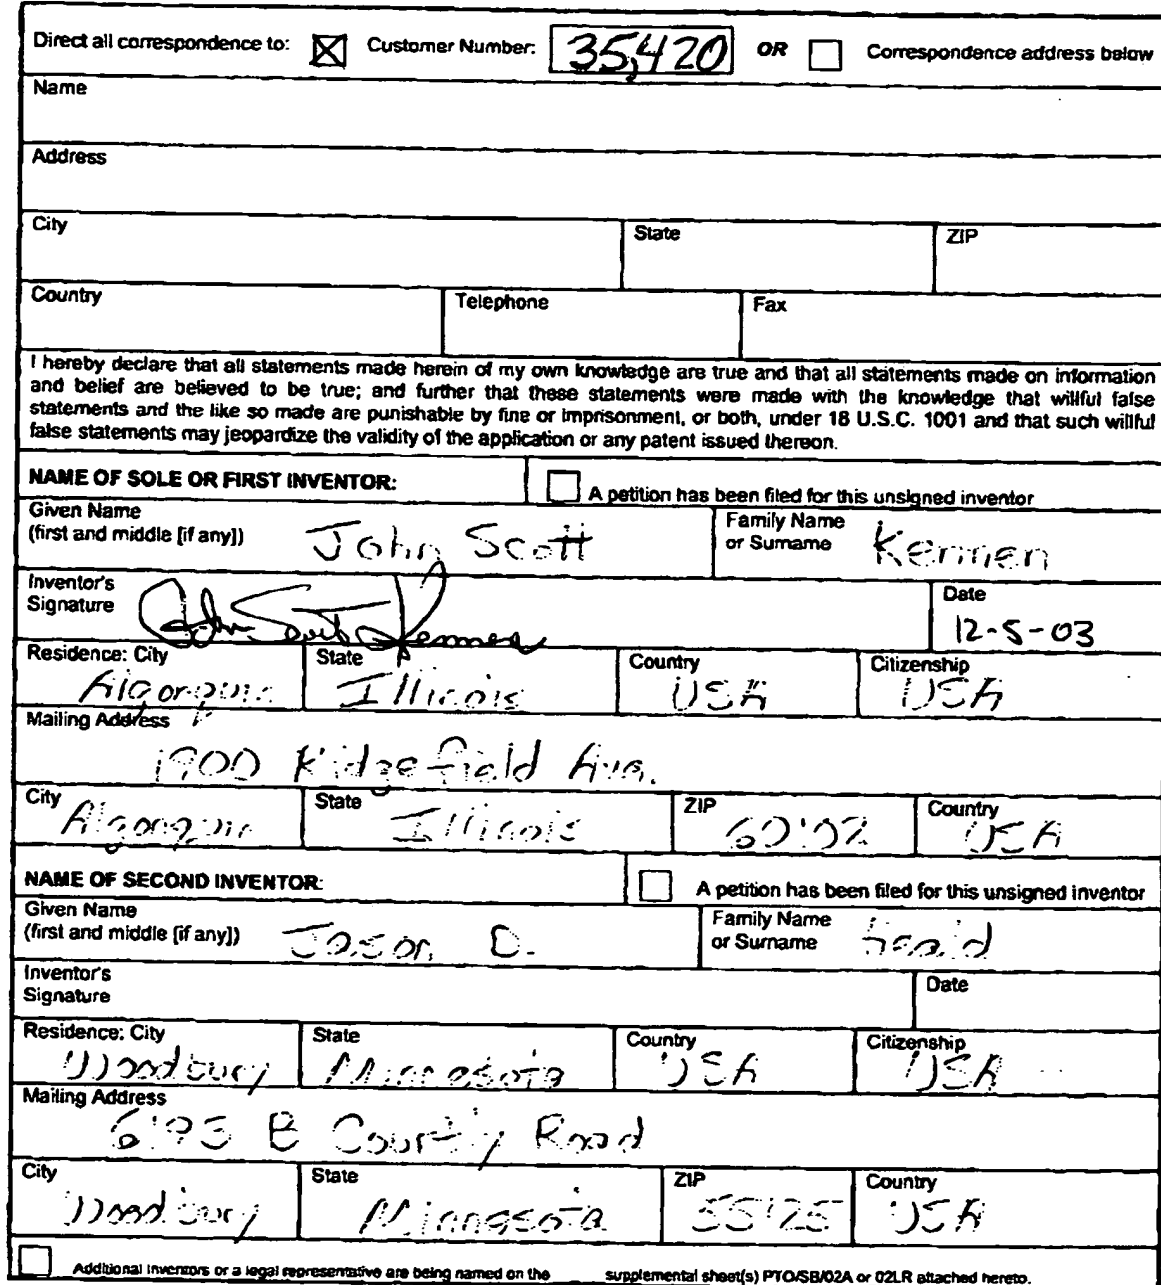 Direct all correspondence to: Customer Number: 35,420 OR Correspondence address below
Name
Address
City State ZIP
Country Telephone Fax
I hereby declare that all statements made herein of my own knowledge are true and that all statements made on information
and belief are believed to be true; and further that these statements were made with the knowledge that willful false
statements and the like so made are punishable by fine or imprisonment, or both, under 18 U.S.C. 1001 and that such willful
false statements may jeopardize the validity of the application or any patent issued thereon.
NAME OF SOLE OR FIRST INVENTOR: A petition has been filed for this unsigned inventor
Given Name
(first and middle [if any]) John Scott
Family Name
or Surname Kermen
Inventor's
Signature John Scott Kermen
Date
12-5-03
Residence: City State Country Citizenship
Illinois USA USA
Mailing Address
1900 Ridgefield Ave.
City State ZIP Country
Illinois USA
NAME OF SECOND INVENTOR: A petition has been filed for this unsigned inventor
Given Name
(first and middle [if any]) Jason D.
Family Name
or Surname
Inventor's
Signature
Date
Residence: City State Country Citizenship
Woodbury Minnesota USA USA
Mailing Address
County Road
City State ZIP Country
Woodbury Minnesota 55125 USA
Additional inventors or a legal representative are being named on the supplemental sheet(s) PTO/SB/02A or 02LR attached hereto.